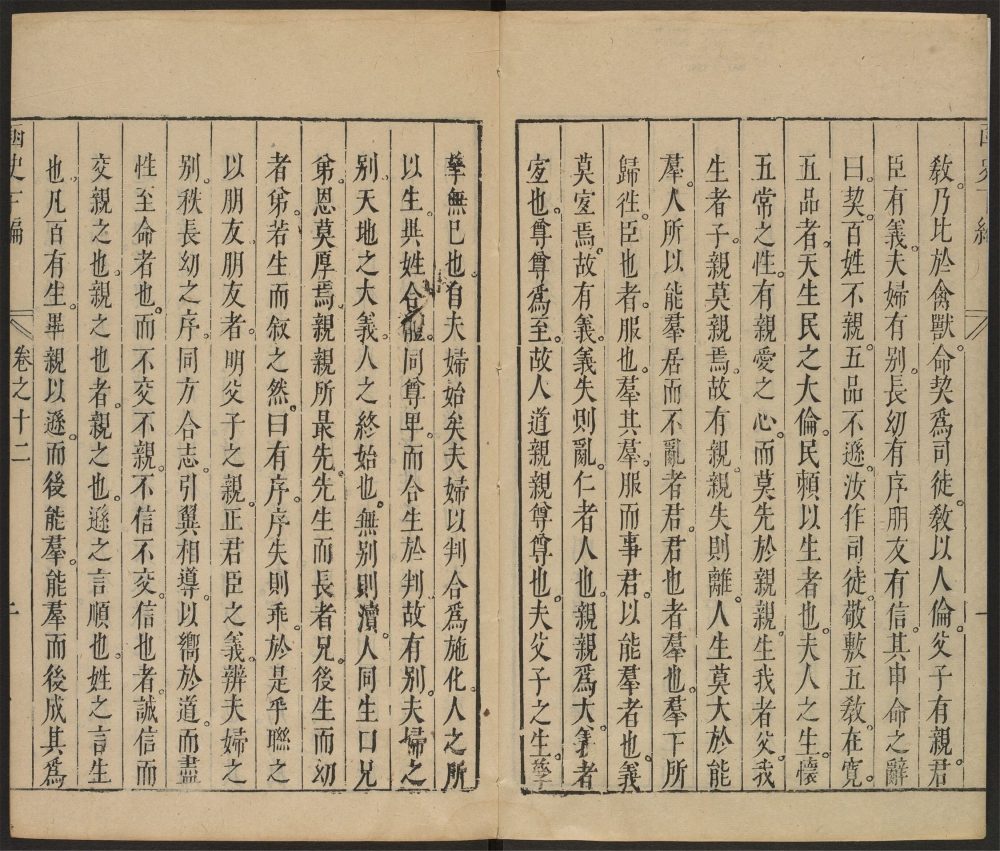 教乃比於禽獸。命契爲司徒。敎以人倫。父子有親。君
臣有義。夫婦有別。長幼有序。朋友有信。其申命之辭
曰。契。百姓不親。五品不遜。汝作司徒。敬敷五敎。在寬。
五品者。天生民之大倫。民賴以生者也。夫人之生。懷
五常之性。有親愛之心。而莫先於親。親生我者父。我
生者子。親莫親焉。故有親。親失則離。人生莫大於能
羣。人所以能羣居而不亂者君。君也者羣也。羣下所
歸徃。臣也者。服也。羣其羣。服而事君。以能羣者也。義
莫宜焉。故有義。義失則亂。仁者人也。親親爲大。義者
宜也。尊尊爲至。故人道親親尊尊也。夫父子之生。孳
孳無已也。自夫婦始矣。夫婦以判合爲施化。人之所
以生。異姓合體。同尊卑。而合生於判。故有別。夫婦之
別。天地之大義。人之終始也。無別則瀆。人同生曰兄
弟。恩莫厚焉。親親所最先。先生而長者兄。後生而幼
者弟。若生而敘之然。曰有序。序失則乖。於是乎聮之
以朋友。朋友者。明父子之親。正君臣之義。辨夫婦之
別。秩長幼之序。同方合志。引翼相導。以嚮於道。而盡
性至命者也。而不交不親。不信不交。信也者。誠信而
交親之也。親之也者。親之也。遜之言順也。姓之言生
也。凡百有生。畢親以遜而後能羣。能羣而後成其爲
函史下編
卷之十二